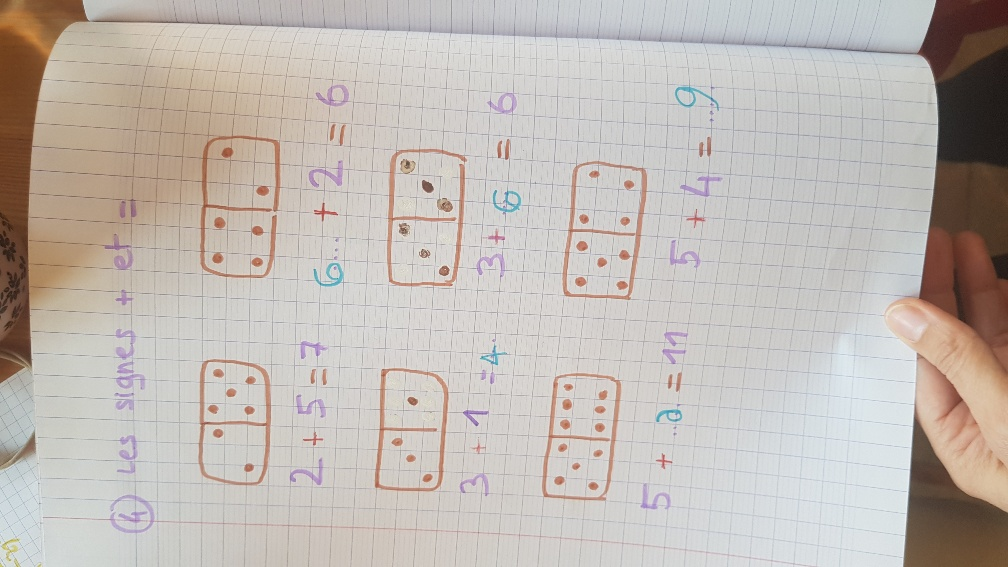 ④ Les signes + et =
2 + 5 = 7
6... + 2 = 6
3 + 1 = 4.
3 + 6 = 6
5 + ...6 = 11
5 + 4 = ...9